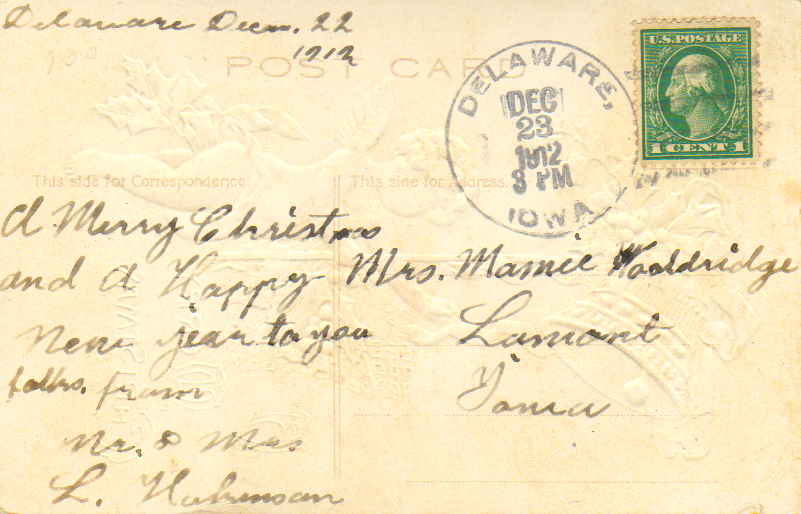 Delaware Decm. 22
1912
POST CARD
DELAWARE,
DEC
23
1912
8 PM
IOWA
U.S. POSTAGE
1 CENT 1
This side for Correspondence.
This side for Address.
A Merry Christmas
and A Happy
New year to you
folks. from
Mr. & Mrs
L.
Mrs. Mamie Wooldridge
Lamont
Iowa